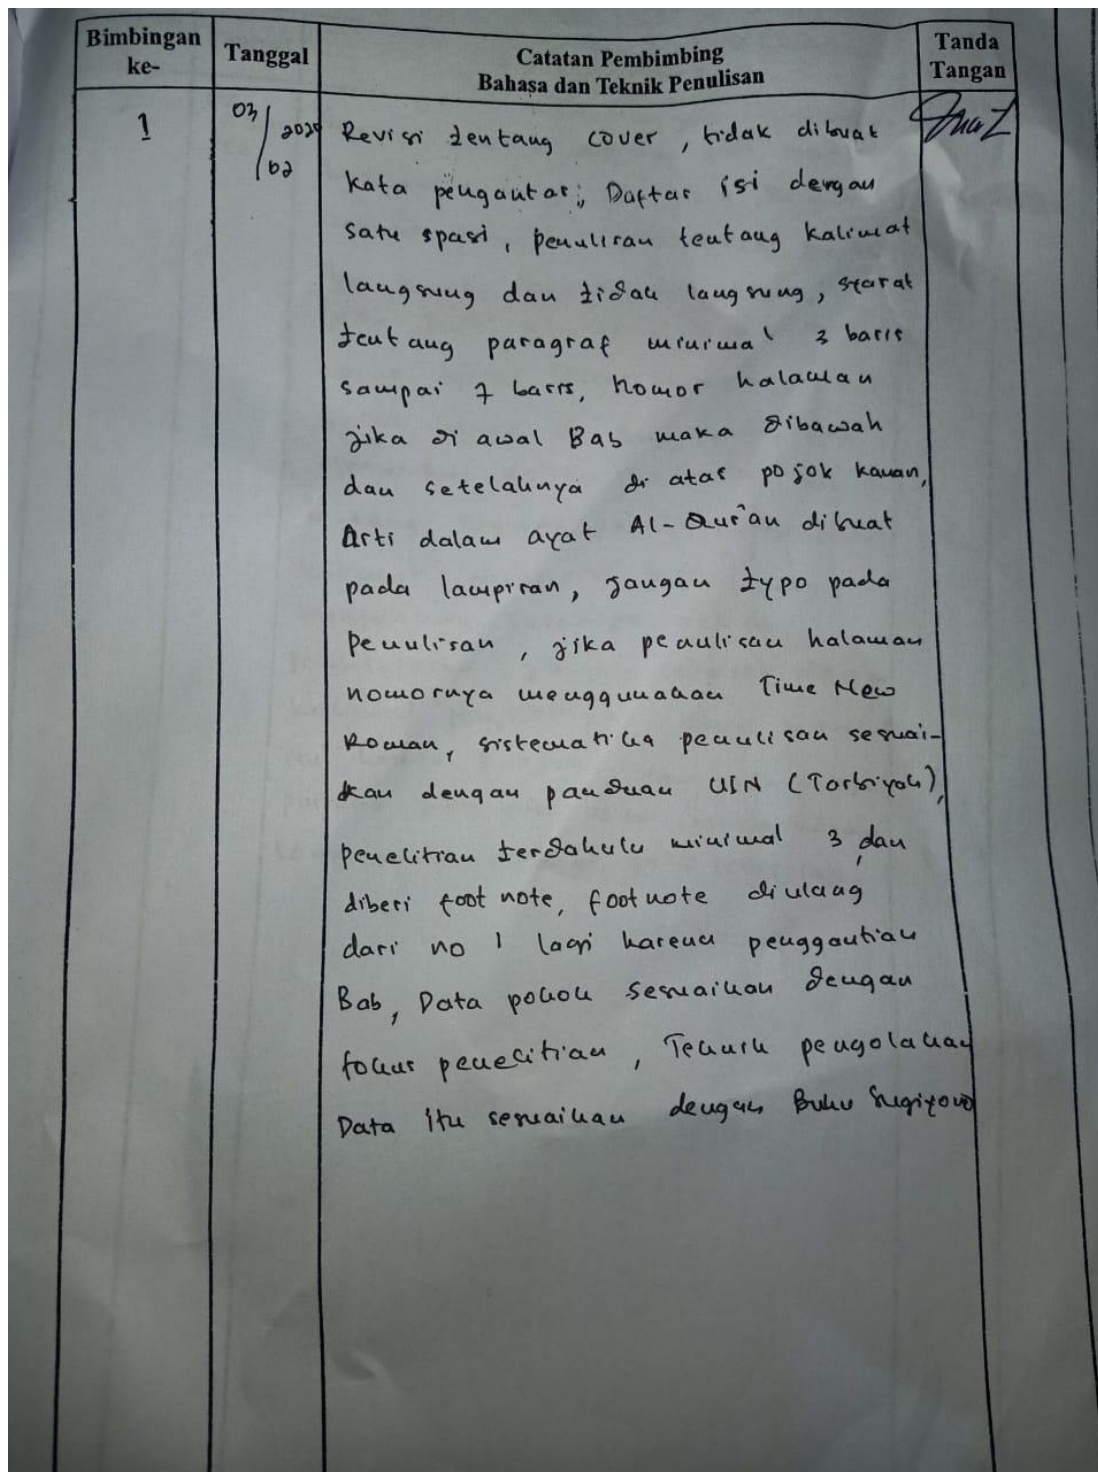 Bimbingan ke-
Tanggal
Catatan Pembimbing
Bahasa dan Teknik Penulisan
Tanda Tangan
1
03/02
Revisi tentang cover, tidak dibuat
kata pengantar; Daftar isi dengan
satu spasi, penulisan tentang kalimat
langsung dan tidak langsung, syarat
tentang paragraf minimal 3 baris
sampai 7 baris, Nomor halaman
jika di awal Bab maka dibawah
dan setelahnya di atas pojok kanan,
Arti dalam ayat Al-Qur'an dibuat
pada lampiran, jangan typo pada
Penulisan, jika penulisan halaman
nomornya menggunakan Time New
Roman, sistematika penulisan sesuai-
kan dengan panduan UIN (Tarbiyah),
penelitian terdahulu minimal 3 dan
diberi foot note, footnote diulang
dari no 1 lagi karena penggantian
Bab, Data pokok sesuaikan dengan
fokus penelitian, Teknik pengolahan
Data itu sesuaikan dengan Buku Sugiyono